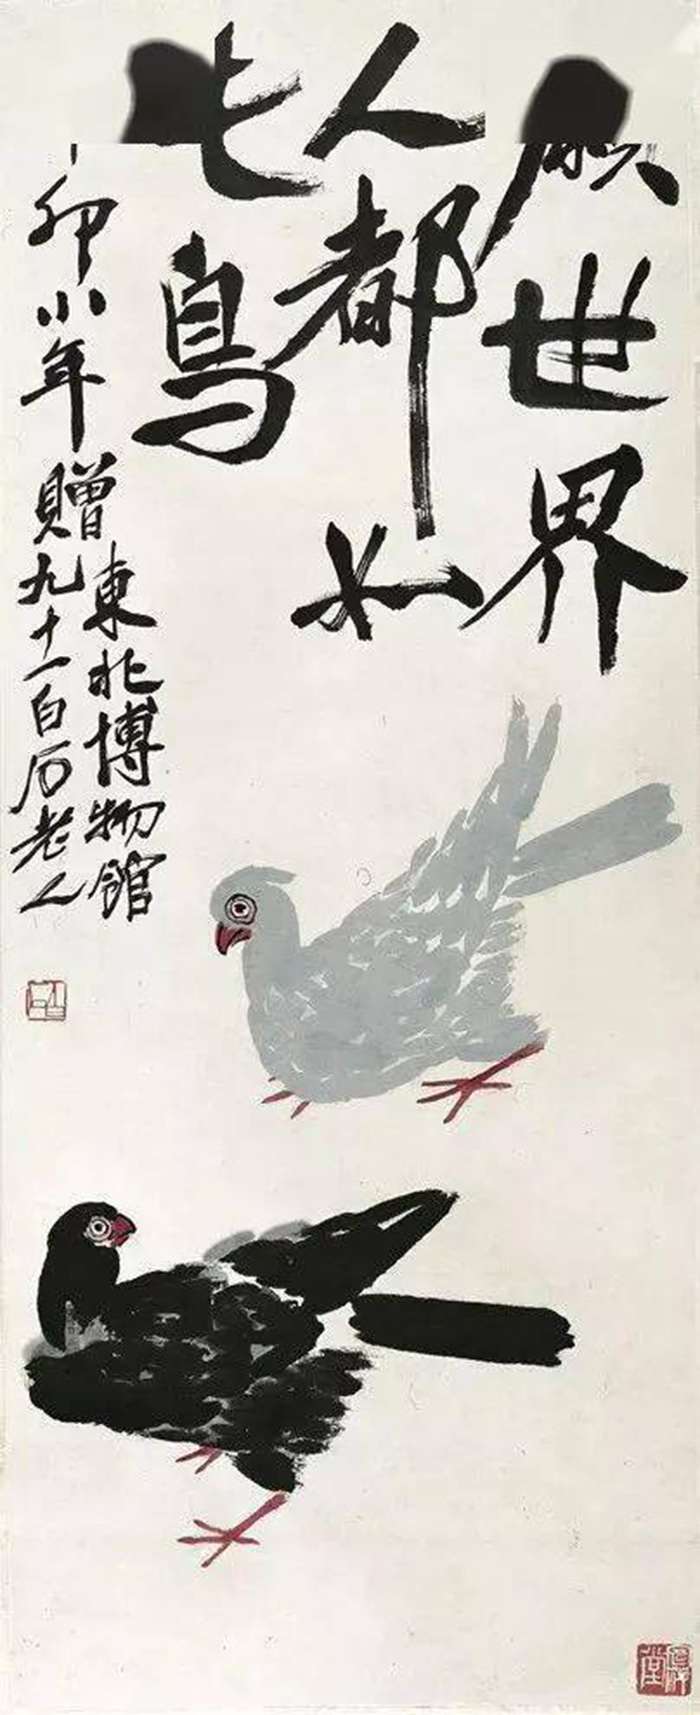 世界
人都如
鳥
卯小年贈
東北博物館
九十一白石老人